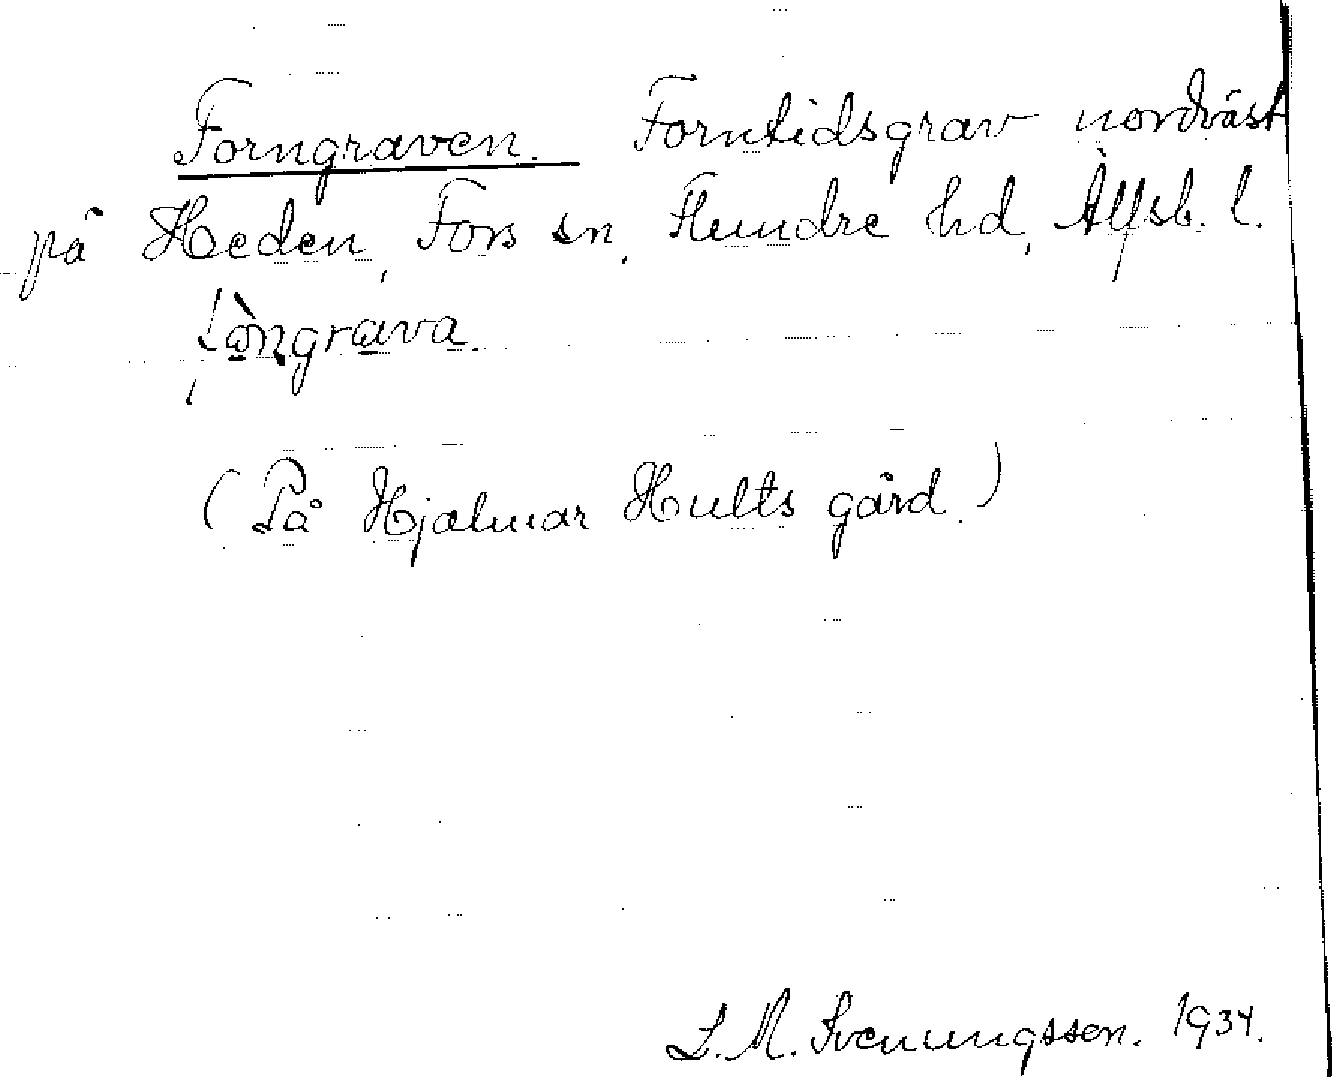 Forngraven. Forntidsgrav nordväst
på Heden, Fors sn, Flundre hd, Älfsb. l.
(På Hjalmar Hults gård.)
S. M. Svenungsson. 1934.